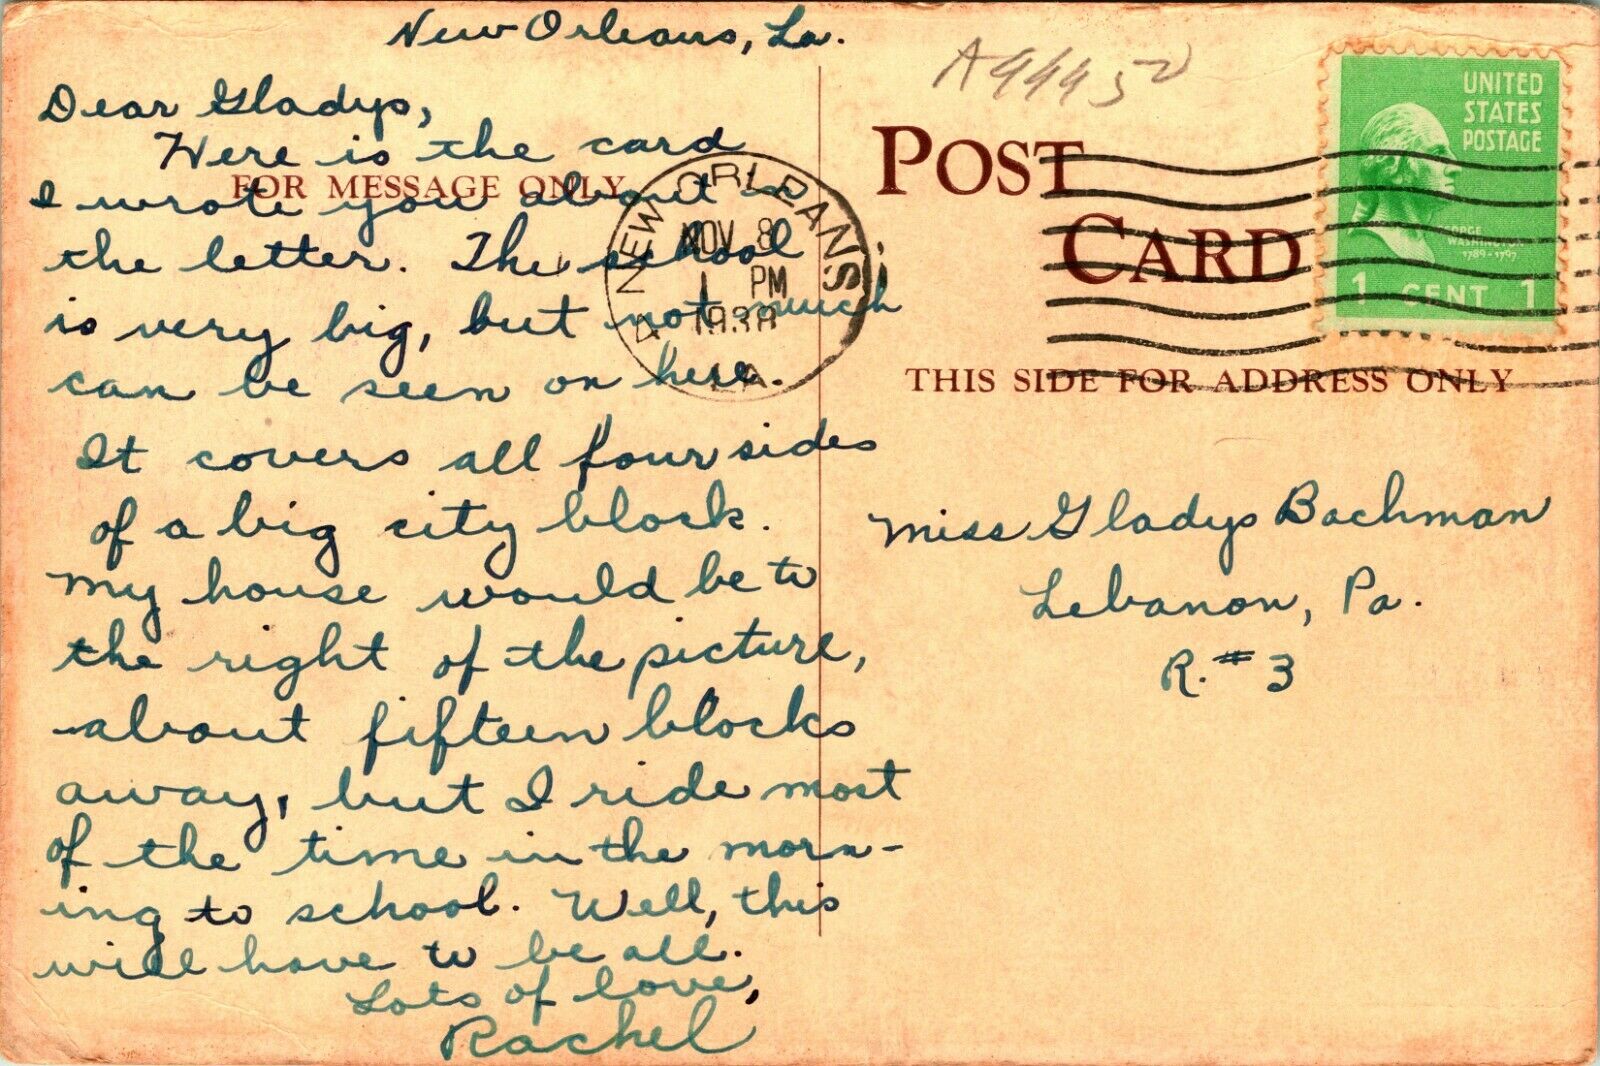 New Orleans, La.
Dear Gladys,
Here is the card
I wrote you about in
the letter. The school
is very big, but not much
can be seen on here.
It covers all four sides
of a big city block.
My house would be to
the right of the picture,
about fifteen blocks
away, but I ride most
of the time in the morn-
ing to school. Well, this
will have to be all.
Lots of love,
Rachel
FOR MESSAGE ONLY
NEW ORLEANS
NOV 8
1 PM
1938
LA
POST
CARD
THIS SIDE FOR ADDRESS ONLY
UNITED
STATES
POSTAGE
GEORGE
WASHINGTON
1789-1797
1 CENT 1
Miss Gladys Bachman
Lebanon, Pa.
R. # 3